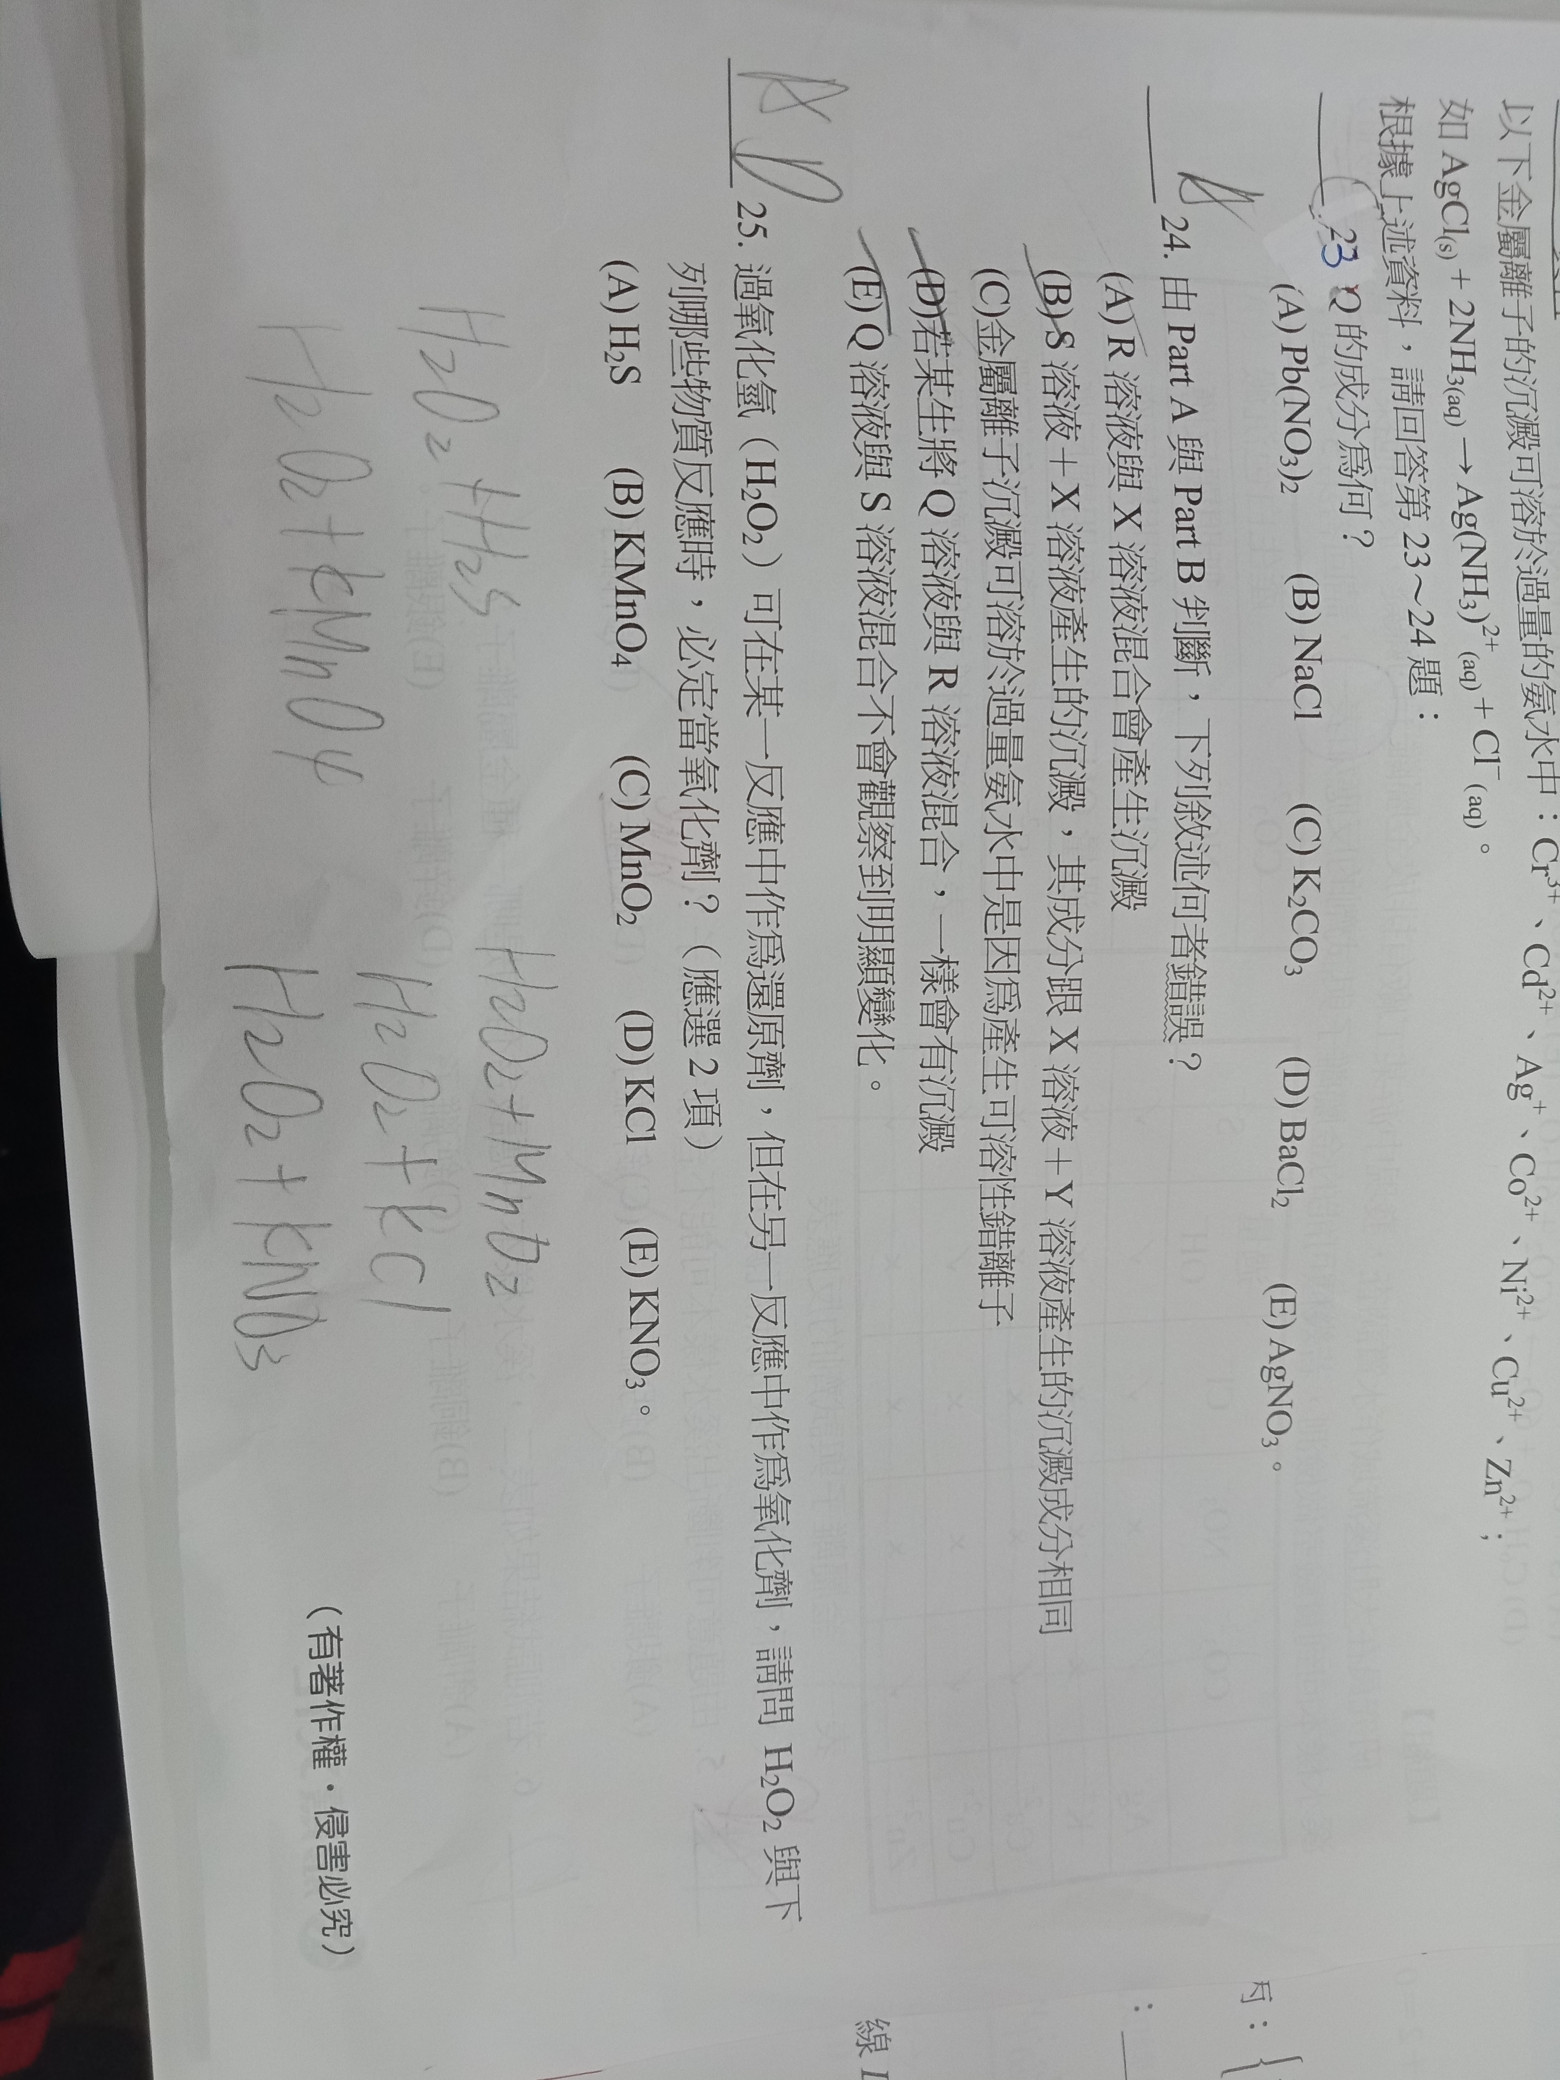 以下金屬離子的沉澱可溶於過量的氨水中：Cr³⁺、Cd²⁺、Ag⁺、Co²⁺、Ni²⁺、Cu²⁺、Zn²⁺；
如 AgCl₍ₛ₎ + 2NH₃(aq) → Ag(NH₃)²⁺(aq) + Cl⁻(aq)。
根據上述資料，請回答第 23～24 題：
23 Q 的成分為何？
(A) Pb(NO₃)₂ (B) NaCl (C) K₂CO₃ (D) BaCl₂ (E) AgNO₃。
A 24. 由 Part A 與 Part B 判斷，下列敘述何者錯誤？
(A) R 溶液與 X 溶液混合會產生沉澱
(B) S 溶液＋X 溶液產生的沉澱，其成分跟 X 溶液＋Y 溶液產生的沉澱成分相同
(C)金屬離子沉澱可溶於過量氨水中是因為產生可溶性錯離子
(D)若某生將 Q 溶液與 R 溶液混合，一樣會有沉澱
(E) Q 溶液與 S 溶液混合不會觀察到明顯變化。
A D 25. 過氧化氫（H₂O₂）可在某一反應中作為還原劑，但在另一反應中作為氧化劑，請問 H₂O₂ 與下
列哪些物質反應時，必定當氧化劑？（應選 2 項）
(A) H₂S (B) KMnO₄ (C) MnO₂ (D) KCl (E) KNO₃。
H₂O₂ + H₂S
H₂O₂ + KMnO₄
H₂O₂ + MnO₂
H₂O₂ + KCl
H₂O₂ + KNO₃
（有著作權．侵害必究）